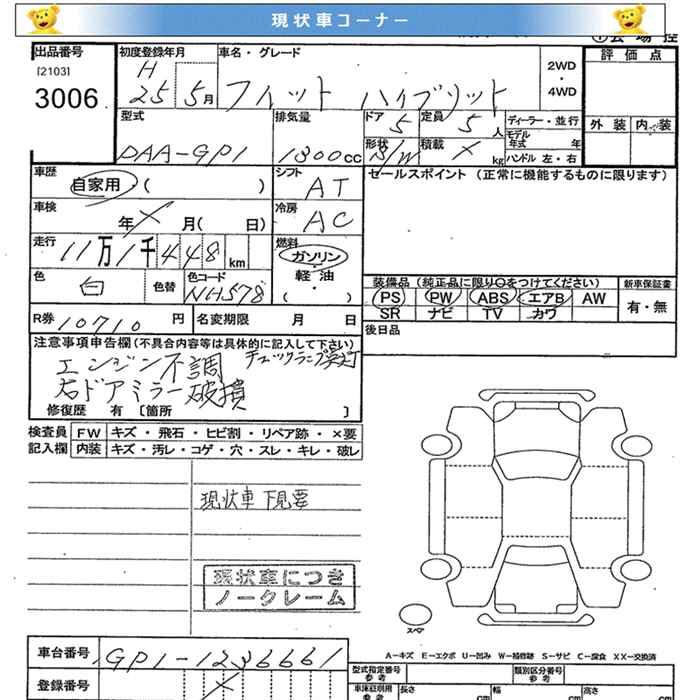 現状車コーナー
出品番号 初度登録年月 車名・グレード 評価点
[2103] H 2WD
3006 25 5月 フィット ハイブリット ・
4WD
型式 排気量 ドア 定員 ディーラー・並行 外装 内装
5 5人 モデル年式 年
DAA-GP1 1300cc 形状 積載 ハンドル 左・右
S/W × kg
車歴 シフト セールスポイント (正常に機能するものに限ります)
自家用・( ) AT
車検 冷房
年 × 月( 日) AC
走行 燃料
11万1千448km ガソリン・
色 色替 色コード 軽油・
白 NH578 ( )
装備品 (純正品に限り○をつけてください) 新車保証書
PS PW ABS エアB AW 有・無
SR ナビ TV カワ
R券 10710 円 名変期限 月 日 後日品
注意事項申告欄(不具合内容等は具体的に記入して下さい)
エンジン不調 チェックランプ点灯
右ドアミラー破損
修復歴 有 [箇所 ]
検査員 FW キズ・飛石・ヒビ割・リペア跡・×要
記入欄 内装 キズ・汚レ・コゲ・穴・スレ・キレ・破レ
現状車 下見要
現状車につき
ノークレーム
スペア
A−キズ E−エクボ U−凹み W−補修跡 S−サビ C−腐食 XX−交換済
車台番号 GP1-1236661 型式指定番号 類別区分番号
参考 参考
登録番号 × 長さ 幅 高さ
cm cm cm